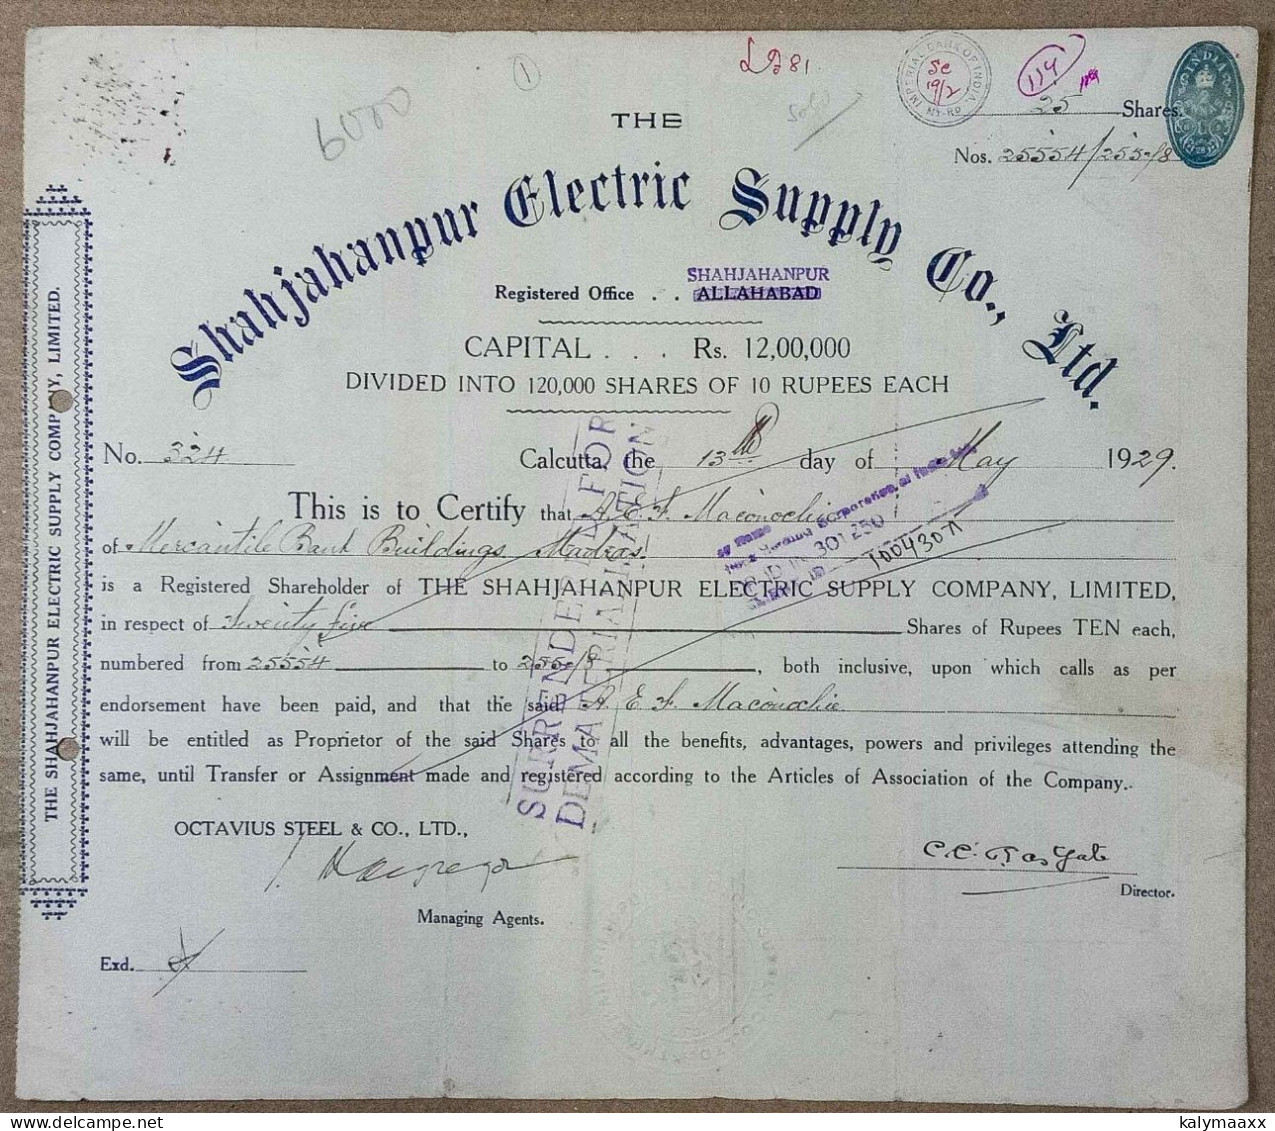 1
6000
81
IMPERIAL BANK OF INDIA
19/2
119
INDIA
25 Shares.
Nos. 25554/255-/8
THE
Shahjahanpur Electric Supply Co., Ltd.
SHAHJAHANPUR
Registered Office . . ALLAHABAD
CAPITAL . . . Rs. 12,00,000
DIVIDED INTO 120,000 SHARES OF 10 RUPEES EACH
No. 324 Calcutta, the 13th day of May 1929.
This is to Certify that A. E. F. Maconochie
of Mercantile Bank Buildings, Madras.
is a Registered Shareholder of THE SHAHJAHANPUR ELECTRIC SUPPLY COMPANY, LIMITED,
in respect of Twenty five Shares of Rupees TEN each,
numbered from 25554 to 255-/8, both inclusive, upon which calls as per
endorsement have been paid, and that the said A. E. F. Maconochie
will be entitled as Proprietor of the said Shares to all the benefits, advantages, powers and privileges attending the
same, until Transfer or Assignment made and registered according to the Articles of Association of the Company.
SURRENDERED FOR
DEMATERIALISATION
IN 301250
10043071
OCTAVIUS STEEL & CO., LTD.,
Managing Agents.
Director.
Exd.
THE SHAHJAHANPUR ELECTRIC SUPPLY COMPANY, LIMITED.
kalymaaxx